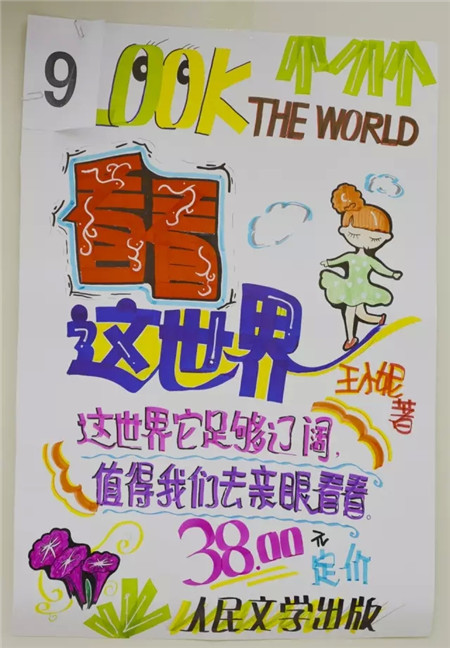 9
LOOK
THE WORLD
看看
这世界
王小妮
著
这世界它足够辽阔,
值得我们去亲眼看看。
38.00元
定价
人民文学出版